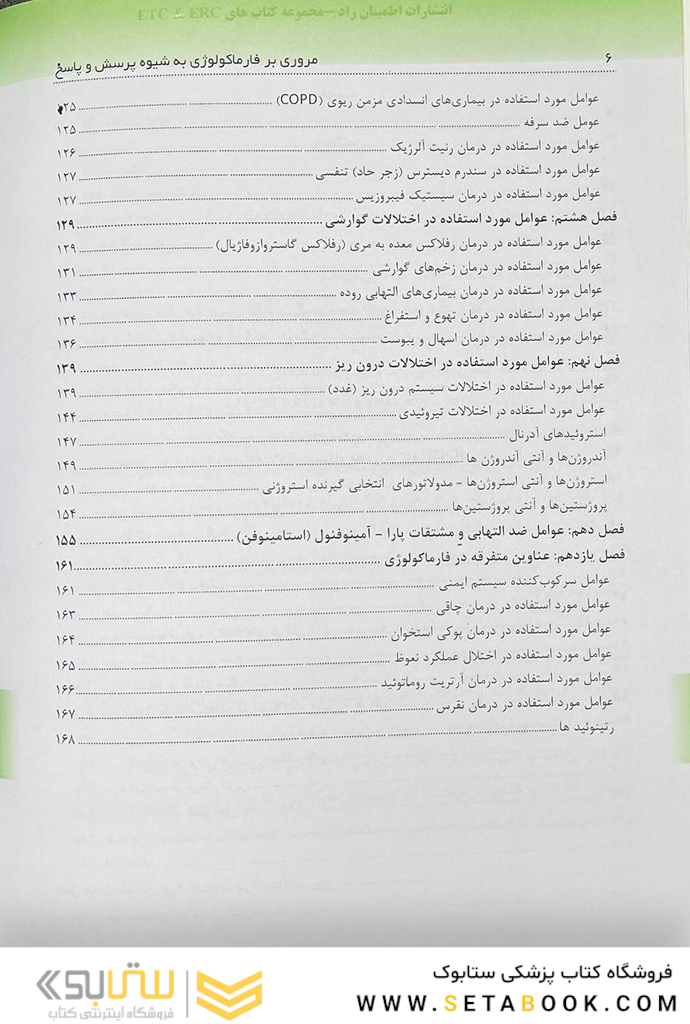 انتشارات اطمینان راد – مجموعه کتاب های ETC & ERC
۶ مروری بر فارماکولوژی به شیوه پرسش و پاسخ
عوامل مورد استفاده در بیماری‌های انسدادی مزمن ریوی (COPD) ۱۲۵
عومل ضد سرفه ۱۲۵
عوامل مورد استفاده در درمان رنیت آلرژیک ۱۲۶
عوامل مورد استفاده در سندرم دیسترس (زجر حاد) تنفسی ۱۲۷
عوامل مورد استفاده در درمان سیستیک فیبروزیس ۱۲۷
فصل هشتم: عوامل مورد استفاده در اختلالات گوارشی ۱۲۹
عوامل مورد استفاده در درمان رفلاکس معده به مری (رفلاکس گاستروازوفاژیال) ۱۲۹
عوامل مورد استفاده در درمان زخم‌های گوارشی ۱۳۱
عوامل مورد استفاده در درمان بیماری‌های التهابی روده ۱۳۳
عوامل مورد استفاده در درمان تهوع و استفراغ ۱۳۴
عوامل مورد استفاده در درمان اسهال و یبوست ۱۳۶
فصل نهم: عوامل مورد استفاده در اختلالات درون ریز ۱۳۹
عوامل مورد استفاده در اختلالات سیستم درون ریز (غدد) ۱۳۹
عوامل مورد استفاده در اختلالات تیروئیدی ۱۴۴
استروئیدهای آدرنال ۱۴۷
آندروژن‌ها و آنتی آندروژن ها ۱۴۹
استروژن‌ها و آنتی استروژن‌ها - مدولاتورهای انتخابی گیرنده استروژنی ۱۵۱
پروژستین‌ها و آنتی پروژستین‌ها ۱۵۴
فصل دهم: عوامل ضد التهابی و مشتقات پارا - آمینوفنول (استامینوفن) ۱۵۵
فصل یازدهم: عناوین متفرقه در فارماکولوژی ۱۶۱
عوامل سرکوب‌کننده سیستم ایمنی ۱۶۱
عوامل مورد استفاده در درمان چاقی ۱۶۳
عوامل مورد استفاده در درمان پوکی استخوان ۱۶۴
عوامل مورد استفاده در اختلال عملکرد نعوظ ۱۶۵
عوامل مورد استفاده در درمان آرتریت روماتوئید ۱۶۶
عوامل مورد استفاده در درمان نقرس ۱۶۷
رتینوئید ها ۱۶۸
فروشگاه کتاب پزشکی ستابوک
WWW.SETABOOK.COM
ستابوک
فروشگاه اینترنتی کتاب